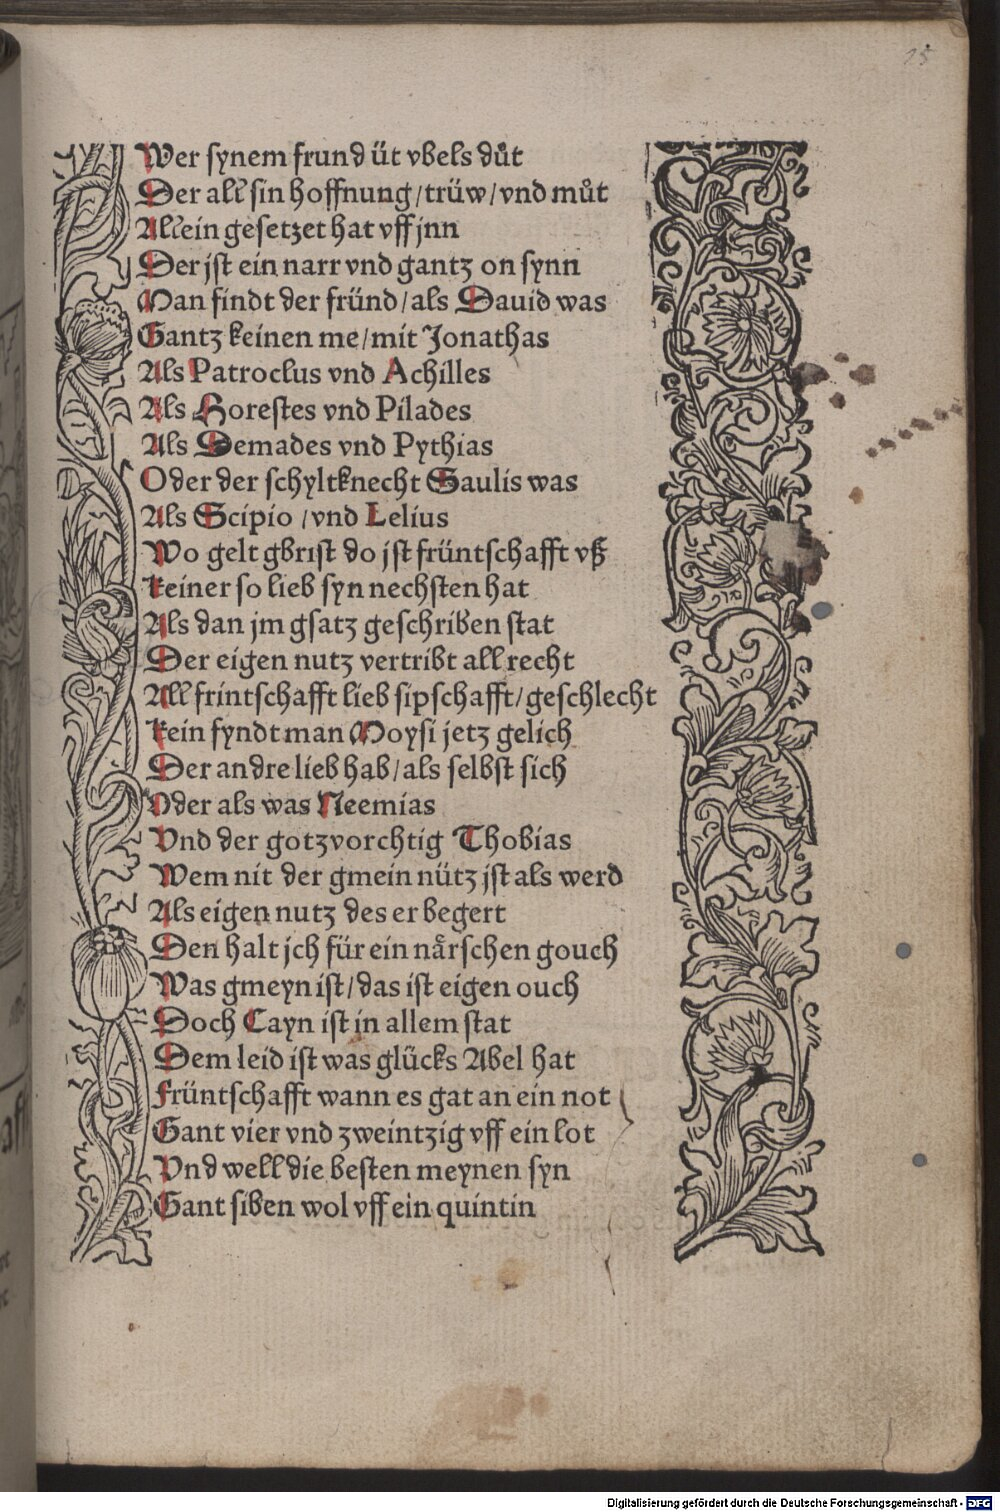 25
Wer synem frund üt vbels důt
Der all sin hoffnung/trüw/vnd můt
Allein gesetzet hat vff jnn
Der jst ein narr vnd gantz on synn
Man findt der fründ/als Dauid was
Gantz keinen me/mit Jonathas
Als Patroclus vnd Achilles
Als Horestes vnd Pilades
Als Demades vnd Pythias
Oder der schyltknecht Saulis was
Als Scipio/vnd Lelius
Wo gelt gbrist do jst früntschafft vß
keiner so lieb syn nechsten hat
Als dan jm gsatz geschriben stat
Der eigen nutz vertribt all recht
All frintschafft lieb sipschafft/geschlecht
kein fyndt man Moysi jetz gelich
Der andre lieb hab/als selbst sich
Oder als was Neemias
Vnd der gotzvorchtig Thobias
Wem nit der gmein nütz jst als werd
Als eigen nutz des er begert
Den halt jch für ein naͤrschen gouch
Was gmeyn ist/das ist eigen ouch
Doch Cayn ist in allem stat
Dem leid ist was glücks Abel hat
früntschafft wann es gat an ein not
Gant vier vnd zweintzig vff ein lot
Vnd well die besten meynen syn
Gant siben wol vff ein quintin
Digitalisierung gefördert durch die Deutsche Forschungsgemeinschaft - DFG